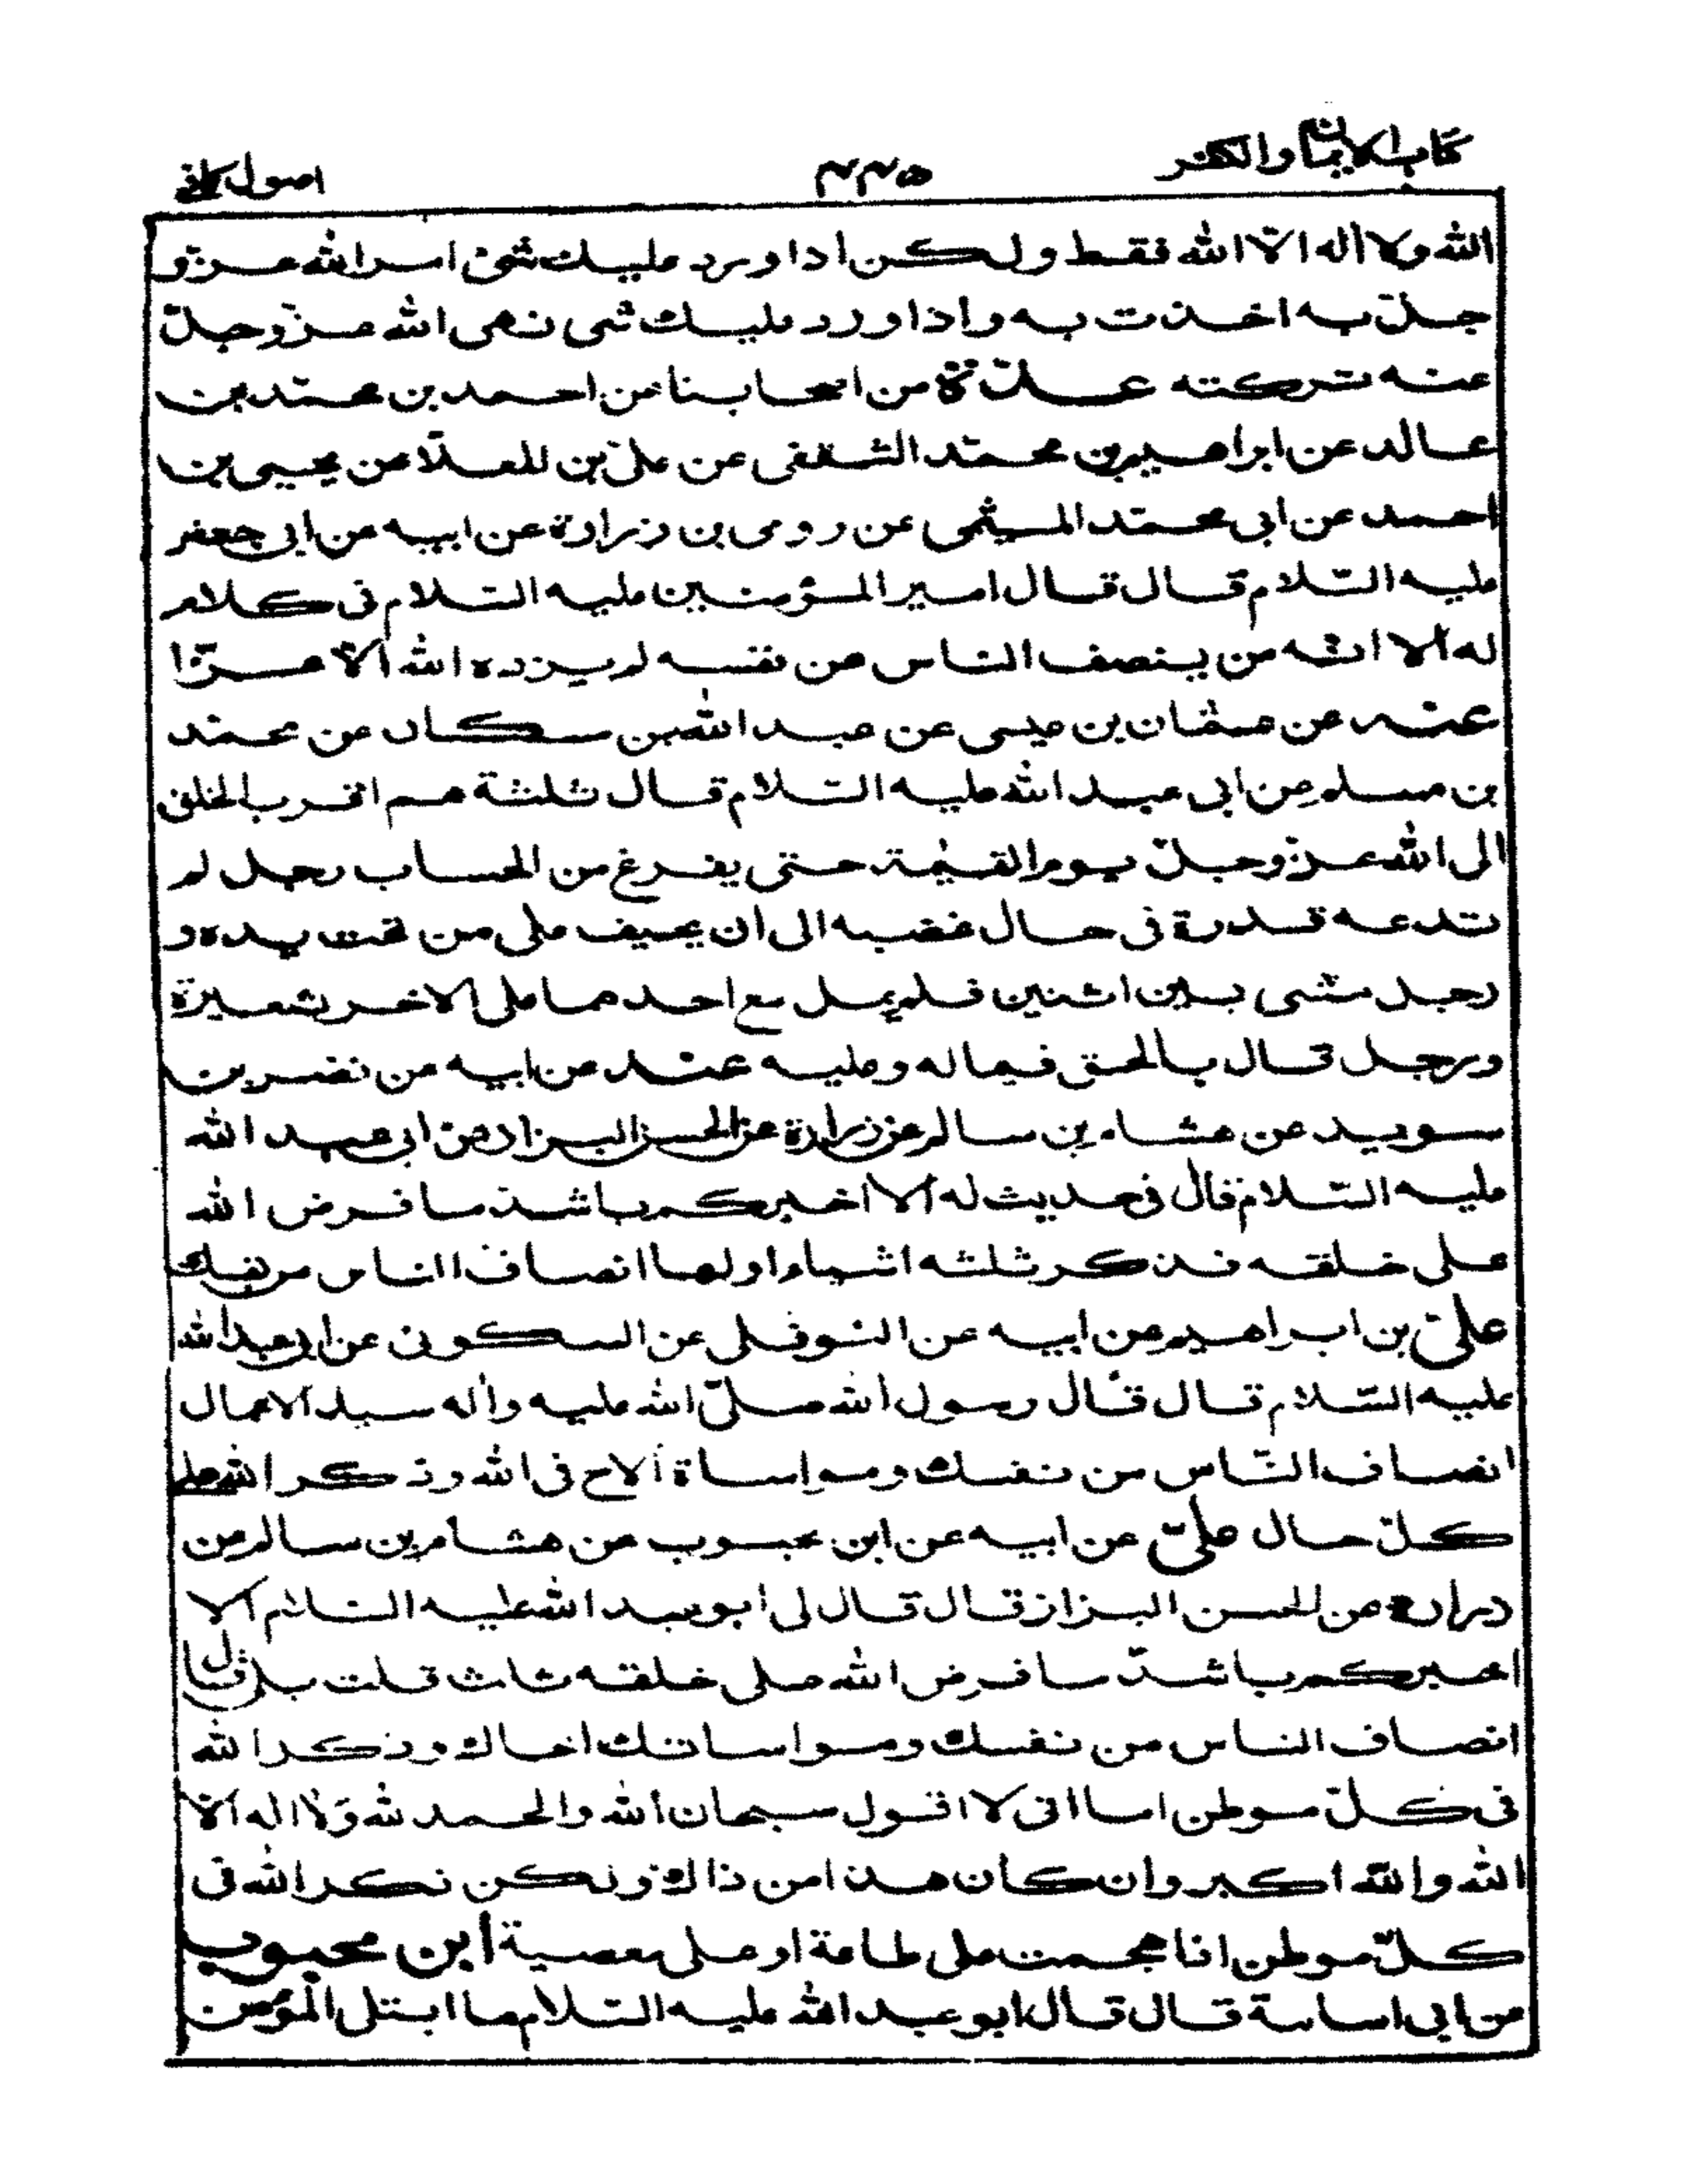 كتاب الايمان والكفر ۳۳۵ اصول كافى
الله ولا اله الا الله فقط ولكن اذا ورد عليك شئ امر الله عزّ و
جلّ به اخذت به واذا ورد عليك شى نهى الله عزّ وجلّ
عنه تركته عدّة من اصحابنا عن احمد بن محمّد بن
خالد عن ابراهيم بن محمّد الثقفى عن علىّ بن المعلّا عن يحيى بن
احمد عن ابى محمّد الميثمى عن رومى بن زرارة عن ابيه عن ابى جعفر
عليه السّلام قال قال امير المؤمنين عليه السّلام فى كلام
له ألا انّه من ينصف الناس من نفسه لم يزده الله الا عزّا
عنه عن عثمان بن عيسى عن عبد الله بن مسكان عن محمّد
بن مسلم عن ابى عبد الله عليه السّلام قال ثلثة هم اقرب الخلق
الى الله عزّ وجلّ يوم القيٰمة حتى يفرغ من الحساب رجل لم
تدعه قدرة فى حال غضبه الى ان يحيف على من تحت يده و
رجل مشى بين اثنين فلم يمل مع احدهما على الاخر بشعيرة
ورجل قال بالحق فيما له وعليه عنه عن ابيه عن نضر بن
سويد عن هشام بن سالم عن زرارة عن الحسن البزاز عن ابى عبد الله
عليه السّلام قال فى حديث له ألا اخبركم باشدّ ما فرض الله
على خلقه فذكر ثلثه اشياء اولها انصاف الناس من نفسك
علىّ بن ابراهيم عن ابيه عن النوفلى عن السكونى عن ابى عبد الله
عليه السّلام قال قال رسول الله صلىّ الله عليه واٰله سيد الاعمال
انصاف النّاس من نفسك ومواساة الاخ فى الله وذكر الله على
كلّ حال علىّ عن ابيه عن ابن محبوب عن هشام بن سالم عن
زرارة عن الحسن البزاز قال قال لى ابو عبد الله عليه السّلام ألا
اخبركم باشدّ ما فرض الله على خلقه ثلث قلت بلى قال
انصاف الناس من نفسك ومواساتك اخاك وذكر الله
فى كلّ موطن اما انى لا اقول سبحان الله والحمد لله ولا اله الا
الله والله اكبر وان كان هذا من ذاك ولكن ذكر الله فى
كلّ موطن اذا هجمت على طاعة او على معصية ابن محبوب
عن ابى اسامة قال قال ابو عبد الله عليه السّلام ما ابتلى المؤمن